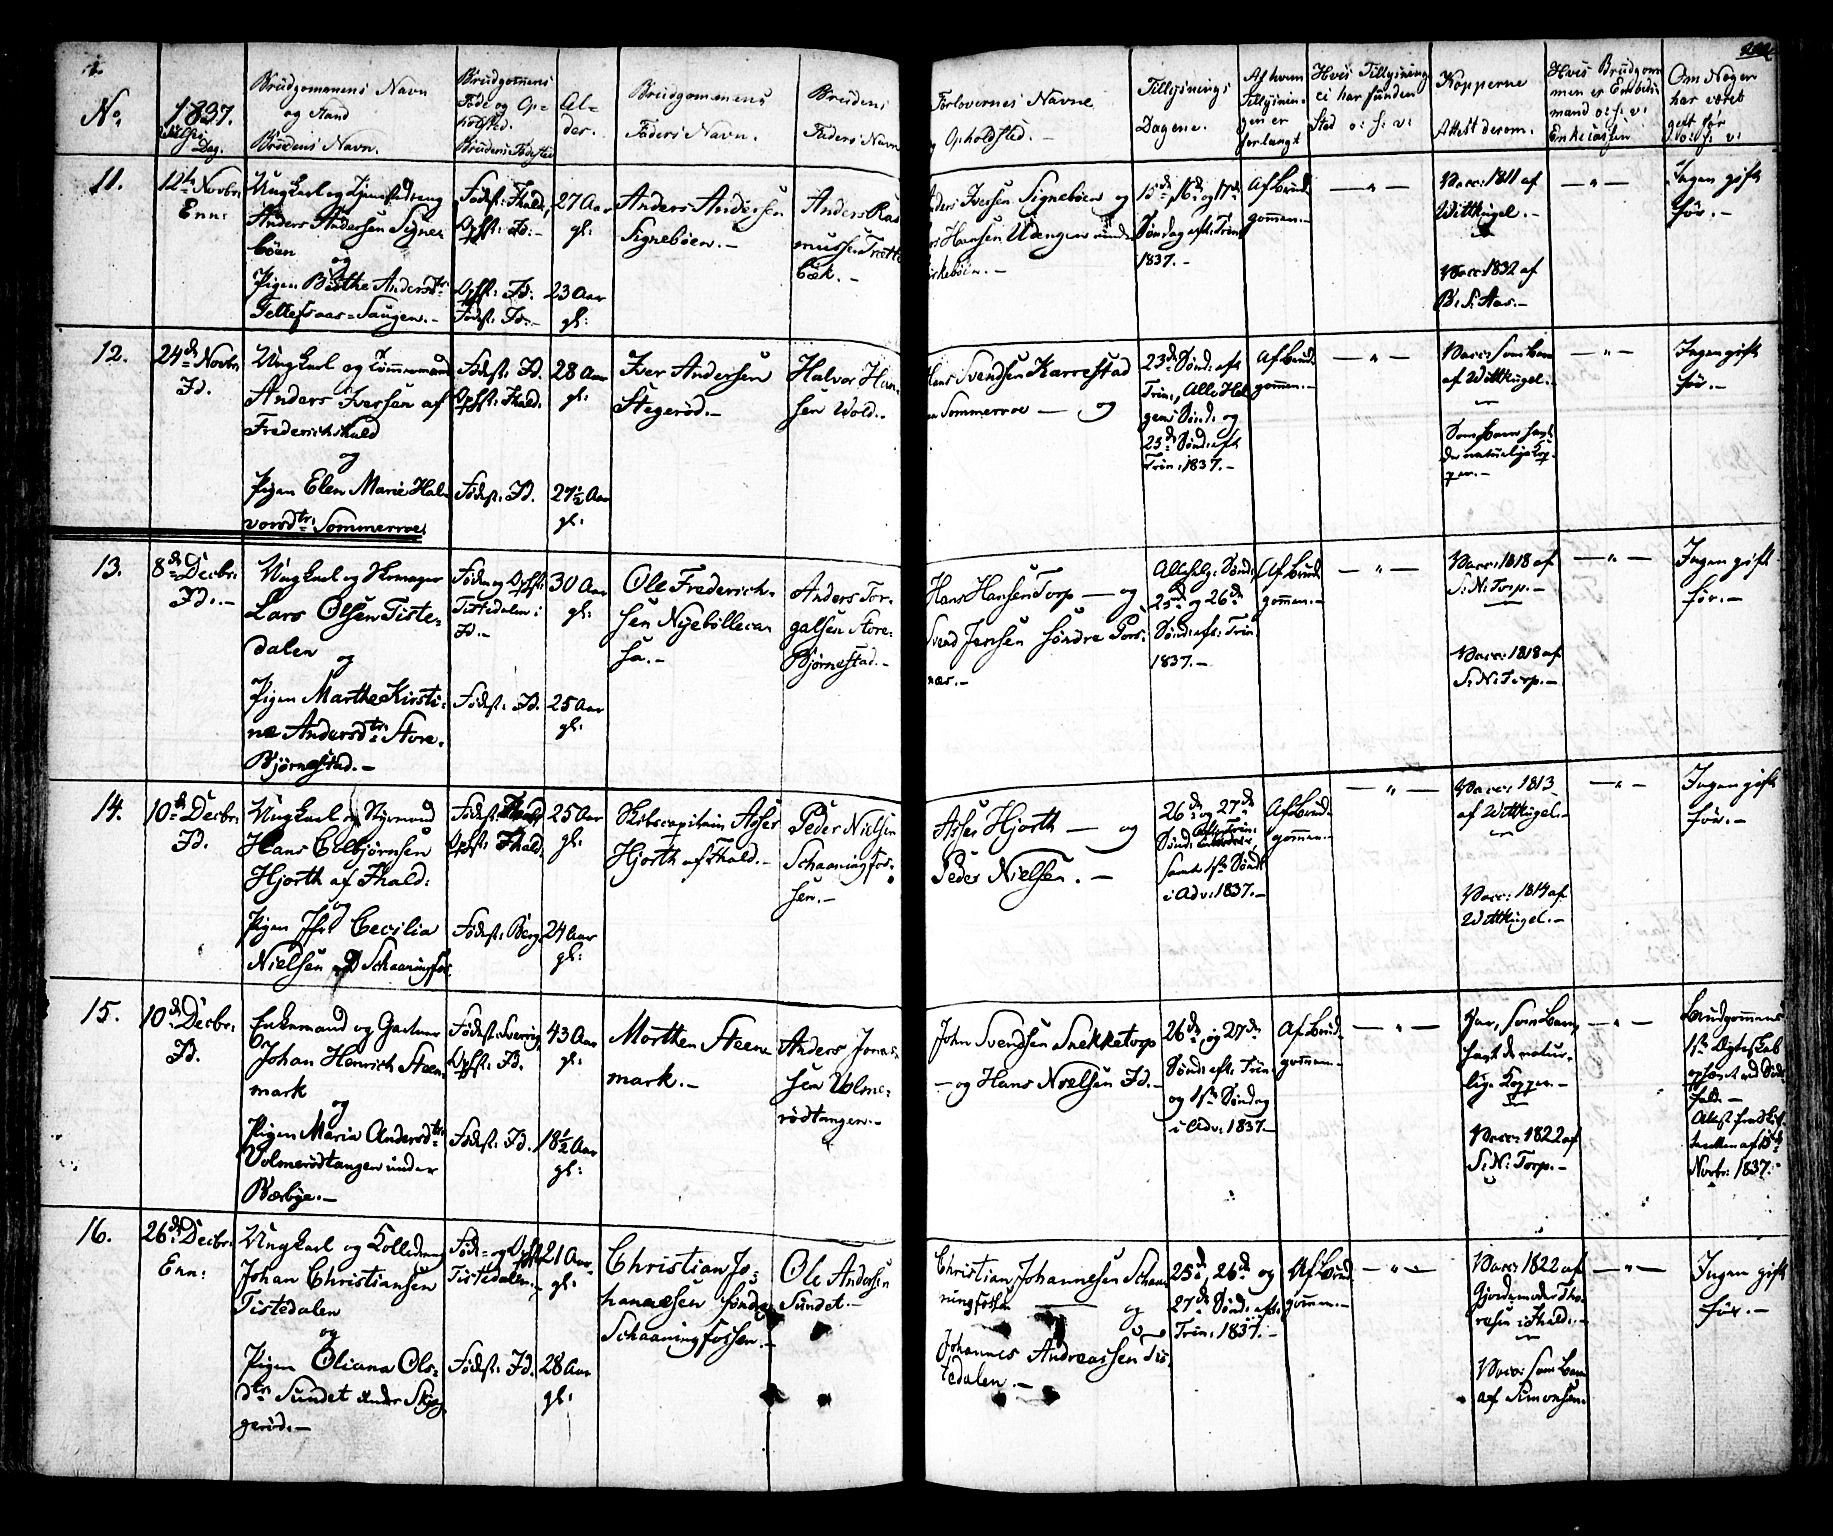 No. 1837.
Vielses Dag.
Brudgommens Navn
og Stand
Brudens Navn.
Brudgommens
Føde og Op-
holdsted.
Brudens Fødested
Al-
der.
Brudgommens
Faders Navn.
Brudens
Faders Navn
Forlovernes Navne
og Opholdsted. —
Tillysnings
Dagene.
Af hvem
Tillysnin-
gen er
forlangt
Hvis Tillysning
ei har funden
Sted o: s: v:
Kopperne
Attest derom.
Hvis Brudgom
men er Embeds
mand o: s: v:
Enkecassen
Om Nogen
har været
gift før
o: s: v:
11.
12te Novbr:
Enn:
Ungkarl og Tjenestedreng
Anders Andersen Signe-
bøen
og
Pigen Berthe Andersdtr:
Tellefsaas-Saugen. —
Fødest: Fhald,
Opst: Id: —
Opst: Id:
Fødest: Id: —
27 Aar
gl:
23 Aar
gl:
Anders Andersen
Signebøen. —
Anders Ras
mussen Trætte
bæk. —
Anders Iversen Signebøen og
Hansen Udengen und:
15de, 16de og 17de
Søndag eft: Trin:
1837. —
Af Brud-
gommen. —
— " —
Vacc: 1811 af
Wittkugel. —
Vacc: 1832 af
B. S. Aas. —
— " —
Ingen gift
før. —
12.
24de Novbr:
Id.
Ungkarl og Tømmermand
Anders Iversen af
Frederichshald
og
Pigen Elen Marie Hal-
vorsdtr: Sommerroe.
Fødest: Id.
Opst: Fhald.
Fødest: Id.
28 Aar
gl:
27½ Aar
gl:
Iver Andersen
Stegerød. —
Halvor Han-
sen Wold. —
Hans Svendsen Karrestad
Sommerroe — og
23de Sønd: eft:
Trin:, Alle Hel
gens Sønd: og
25de Sønd: eft:
Trin: 1837. —
Af Brud-
gommen. —
— " —
Vacc: som Barn
af Wittkugel. —
Som Barn havt
de naturlige Kop-
per. —
— " —
Ingen gift
før. —
13.
8de Decbr:
Id. —
Ungkarl og Skomager
Lars Olsen Tiste-
dalen
og
Pigen Marthe Kirsti-
ne Andersdtr: Store-
Bjørnestad. —
Føde og Opst:
Tistedalen:
Id. —
Fødest: Id.
30 Aar
gl:
25 Aar
gl:
Ole Frederich-
sen Nyebølleaa-
sa. —
Anders Tor-
galsen Store-
Bjørnestad. —
Hans Hansen Torp — og
Svend Jensen søndre Pors-
næs. —
Allehelg: Sønd:
25de og 26de
Sønd: eft: Trin:
1837. —
Af Brud-
gommen. —
— " —
Vacc: 1818 af
S. N. Torp. —
Vacc: 1818 af
S. N. Torp. —
— " —
Ingen gift
før. —
14.
10de Decbr:
Id.
Ungkarl og Styrmand
Hans Colbjørnsen
Hjorth af Fhald:
og
Pigen Jfr: Cecilia
Nielsen Schaaningfos.
Fødest: Fhald
Opst: Fhald.
Fødest: Berg.
25 Aar
gl:
24 Aar
gl:
Skibscapitain Asser
Hjorth af Fhald. —
Peder Nielsen
Schaaningfos-
sen. —
Asser Hjorth — og
Peder Nielsen. —
26de og 27de
Sønd: efter Trin:
samt 1ste Sønd:
i Adv: 1837. —
Af Brud-
gommen. —
— " —
Vacc: 1813
af Wittkugel. —
Vacc: 1814 af
Wittkugel. —
— " —
Ingen gift
før. —
15.
10de Decbr:
Id.
Enkemand og Gartner
Johan Henrich Steen-
mark
og
Pigen Maria Andersdtr:
Volmerødtangen under
Bærbye. —
Fødest: Sverrig,
Opst: Id.
Fødest: Id.
43 Aar
gl:
18½ Aar
gl:
Morthen Steen-
mark. —
Anders Jonas-
sen Volme-
rødtangen. —
John Svendsen Snekketorp
— og Hans Nielsen Id. —
26de og 27de
Sønd: eft: Trin:
og 1ste Søndag
i Adv: 1837. —
Af Brud-
gommen. —
— " —
Har, som Barn,
havt de natur-
lige Kopper. —
Vacc: 1822 af
S. N. Torp. —
— " —
Brudgommens
1ste Ægteskab
ophævet ved Døds-
fald. —
Attest fra Skif-
teretten af
Novbr: 1837. —
16.
26de Decbr:
Enn:
Ungkarl og Tolledreng
Johan Christiansen
Tistedalen
og
Pigen Oliana Ols-
dtr: Sundet under Skjeg-
gerød. —
Føde- og Opst:
Tistedalen. —
Fødest: Id.
21 Aar
gl:
28 Aar
gl:
Christian Jo-
hannesen søndre
Schaaningfossen. —
Ole Andersen
Sundet. —
Christian Johannesen Schaa
ningfossen — og
Johannes Andreassen Tis
tedalen. —
25de, 26de og
27de Sønd: eft:
Trin: 1837. —
Af Brud-
gommen. —
— " —
Vacc: 1822 af
Gjordemoder Tho-
resen i Fhald. —
Vacc: som Barn
af Simonsen.
— " —
Ingen gift
før. —